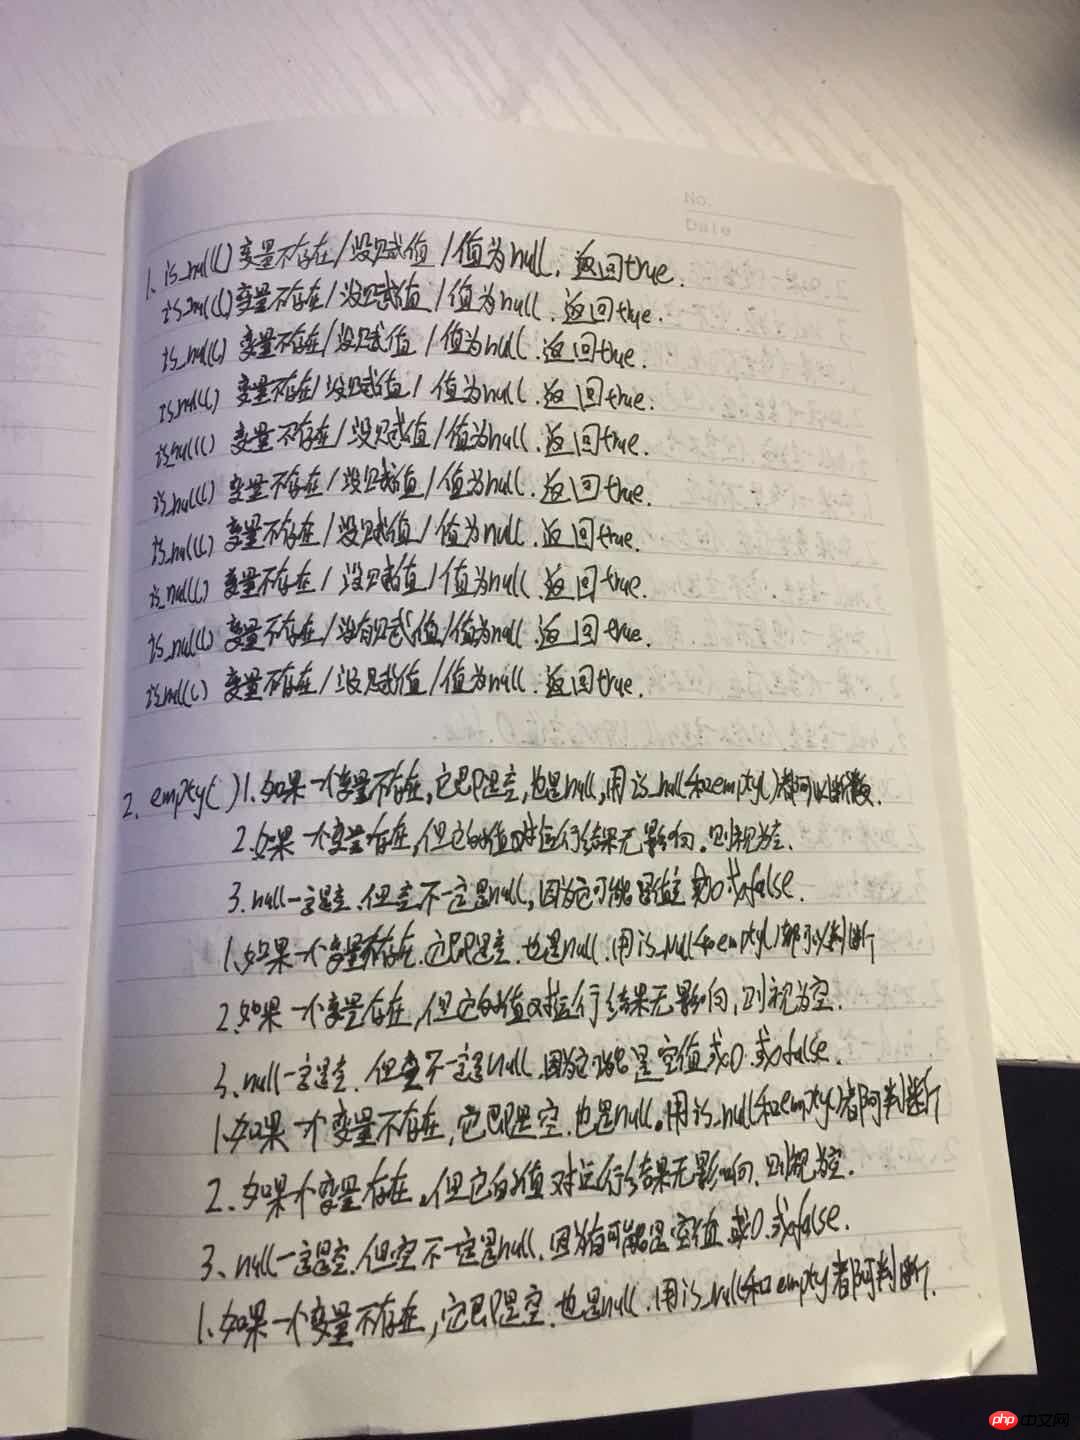 No.
Date
1. is_null() 变量不存在/没赋值/值为null, 返回true.
is_null() 变量不存在/没赋值/值为null. 返回true.
is_null() 变量不存在/没赋值/值为null. 返回true.
is_null() 变量不存在/没赋值/值为null. 返回true.
is_null() 变量不存在/没赋值/值为null. 返回true.
is_null() 变量不存在/没赋值/值为null. 返回true.
is_null() 变量不存在/没赋值/值为null. 返回true.
is_null() 变量不存在/没赋值/值为null. 返回true.
is_null() 变量不存在/没有赋值/值为null. 返回true.
is_null() 变量不存在/没赋值/值为null. 返回true.
2. empty() 1.如果一个变量不存在,它即是空,也是null,用is_null和empty()都可以断.
2.如果一个变量存在,但它的值对运行结果无影响.则视为空.
3.null一定是空.但空不一定是null,因为它可能 或0或false.
1.如果一个变量不存在.它即是空.也是null.用is_null和empty()都可以判断
2.如果一个变量存在,但它的值对运行结果无影响,则视为空.
3、null一定是空.但空不一定是null.因为它可能是空值或0.或false.
1.如果一个变量不存在,它即是空.也是null。用is_null和empty()都可判断
2、如果一个变量存在.但它的值对运行结果无影响.则视为空.
3、null一定是空.但空不一定是null.因为有可能是空值.或0.或false.
1.如果一个变量不存在,它即是空.也是null.用is_null和empty都可判断.
php 中文网